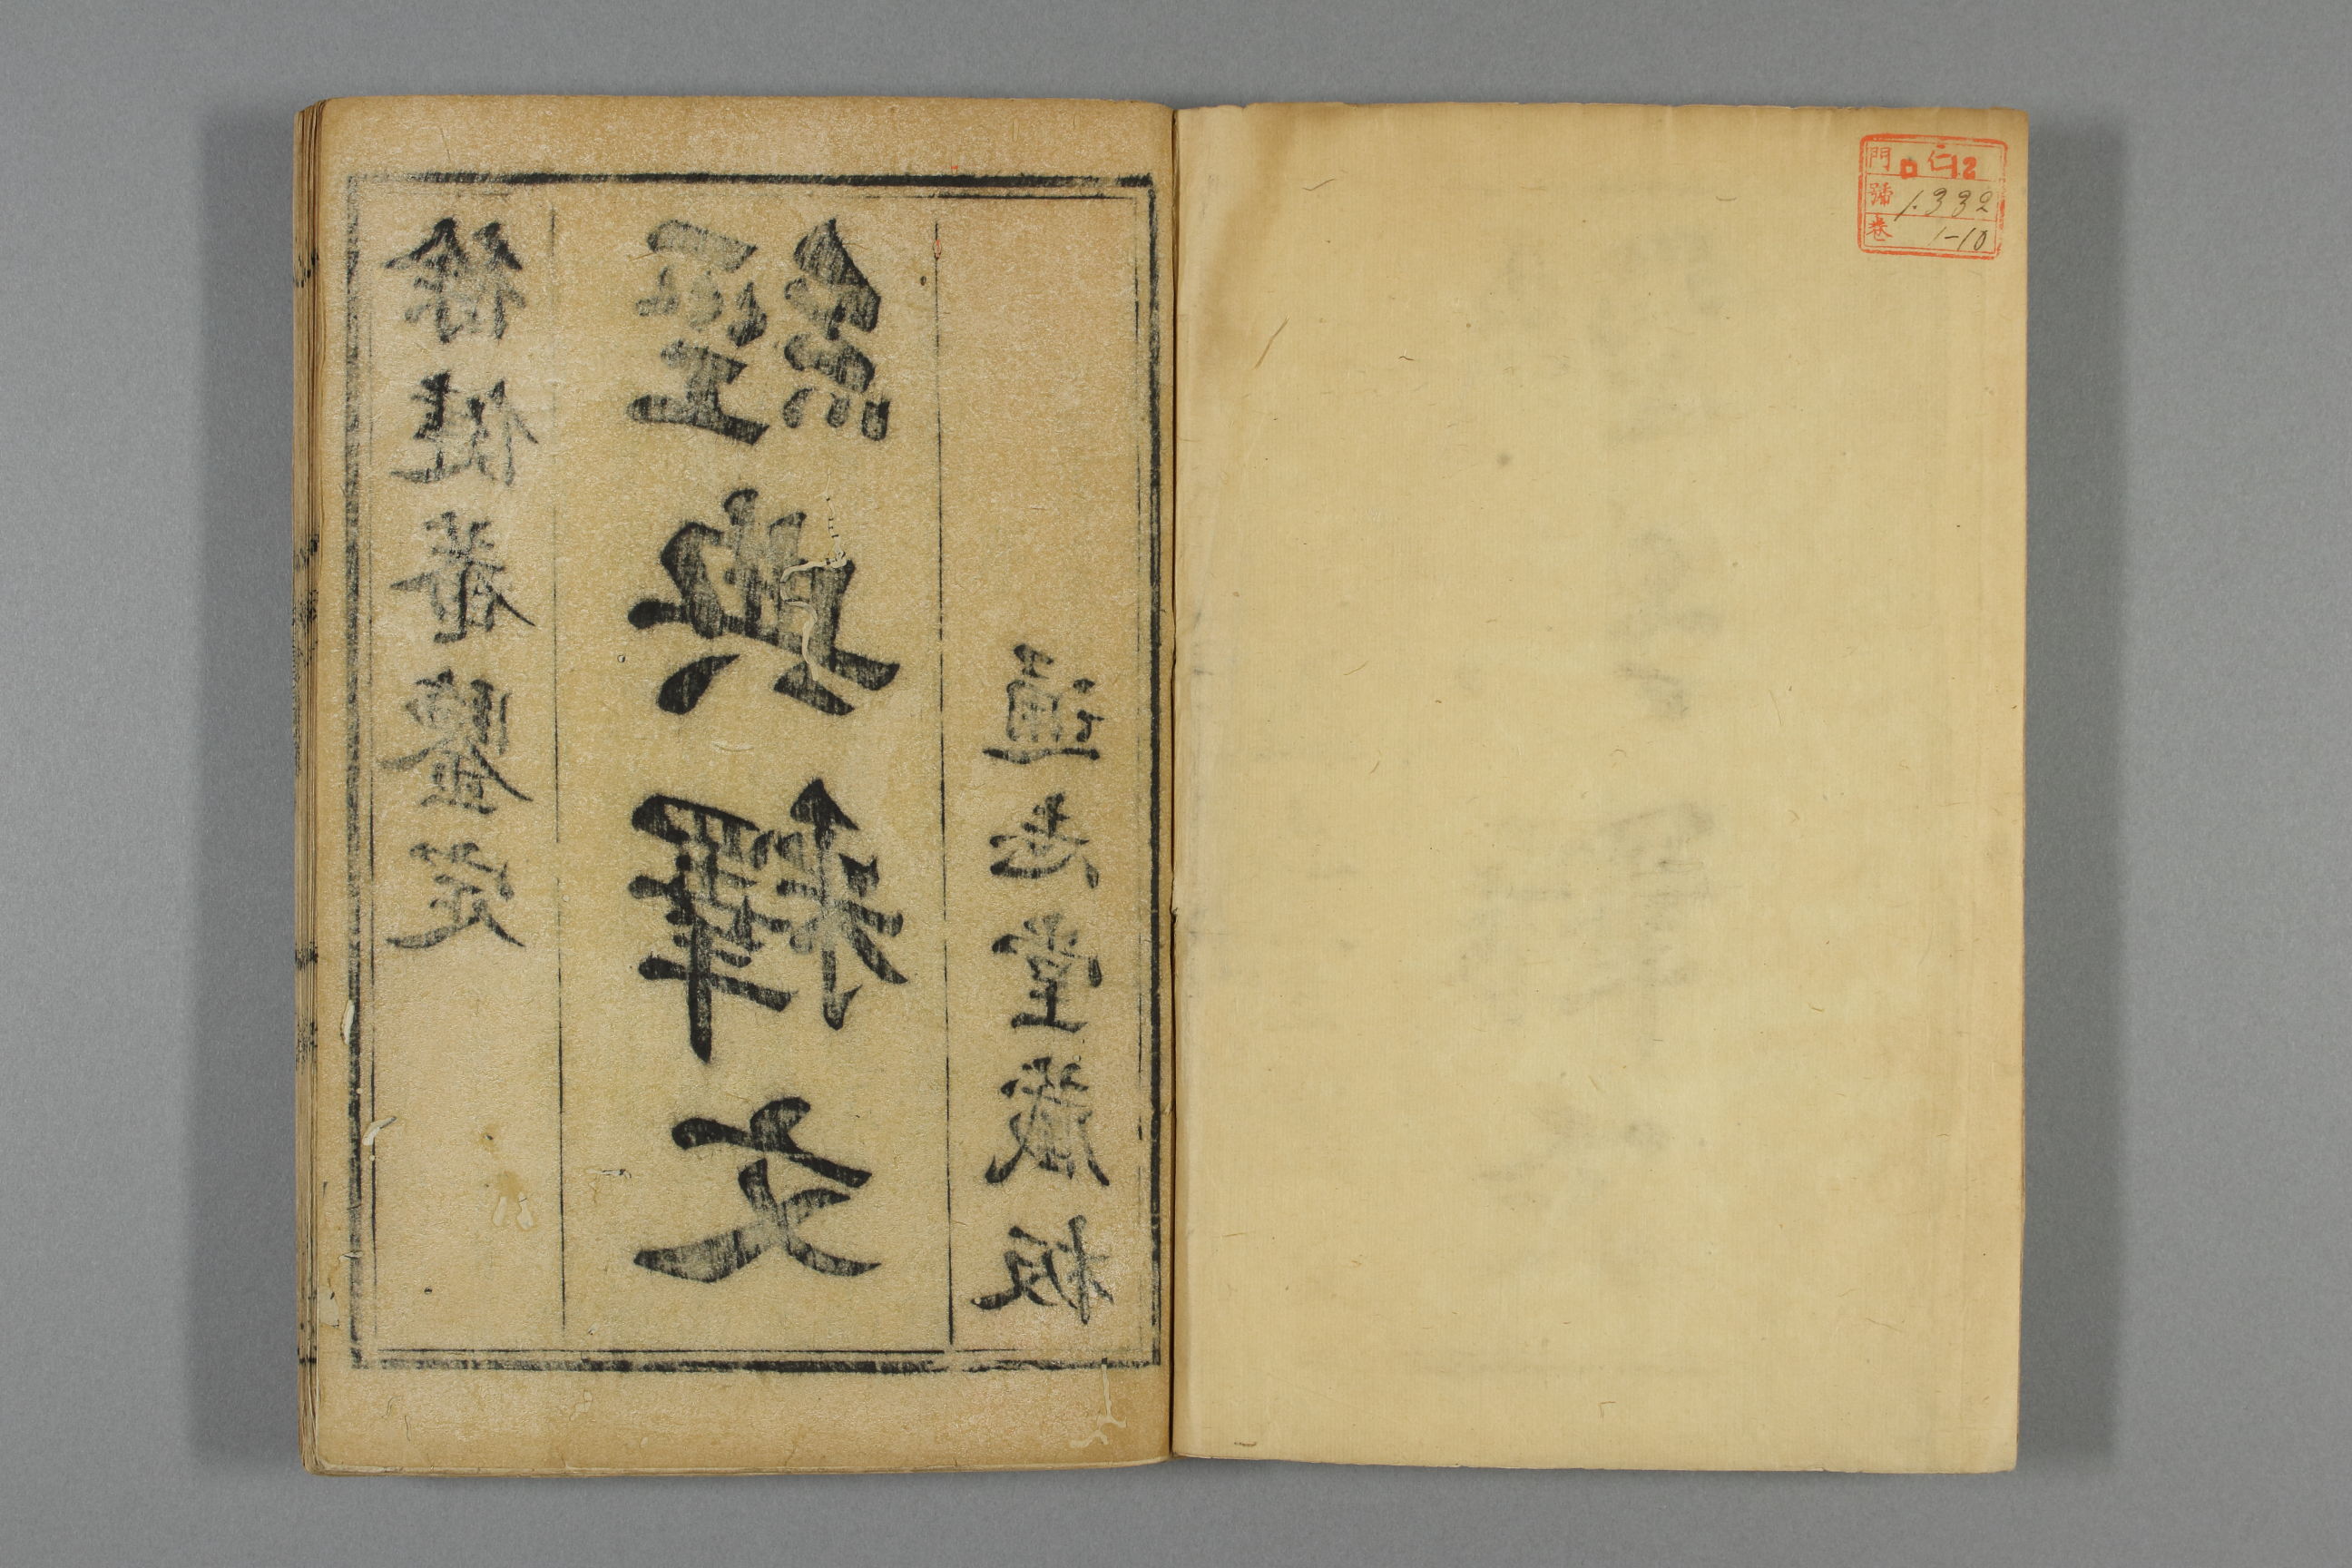 門 ロ 仁12
號 1332
卷 1-10
徐健菴鑒定
經典釋文
通志堂藏板